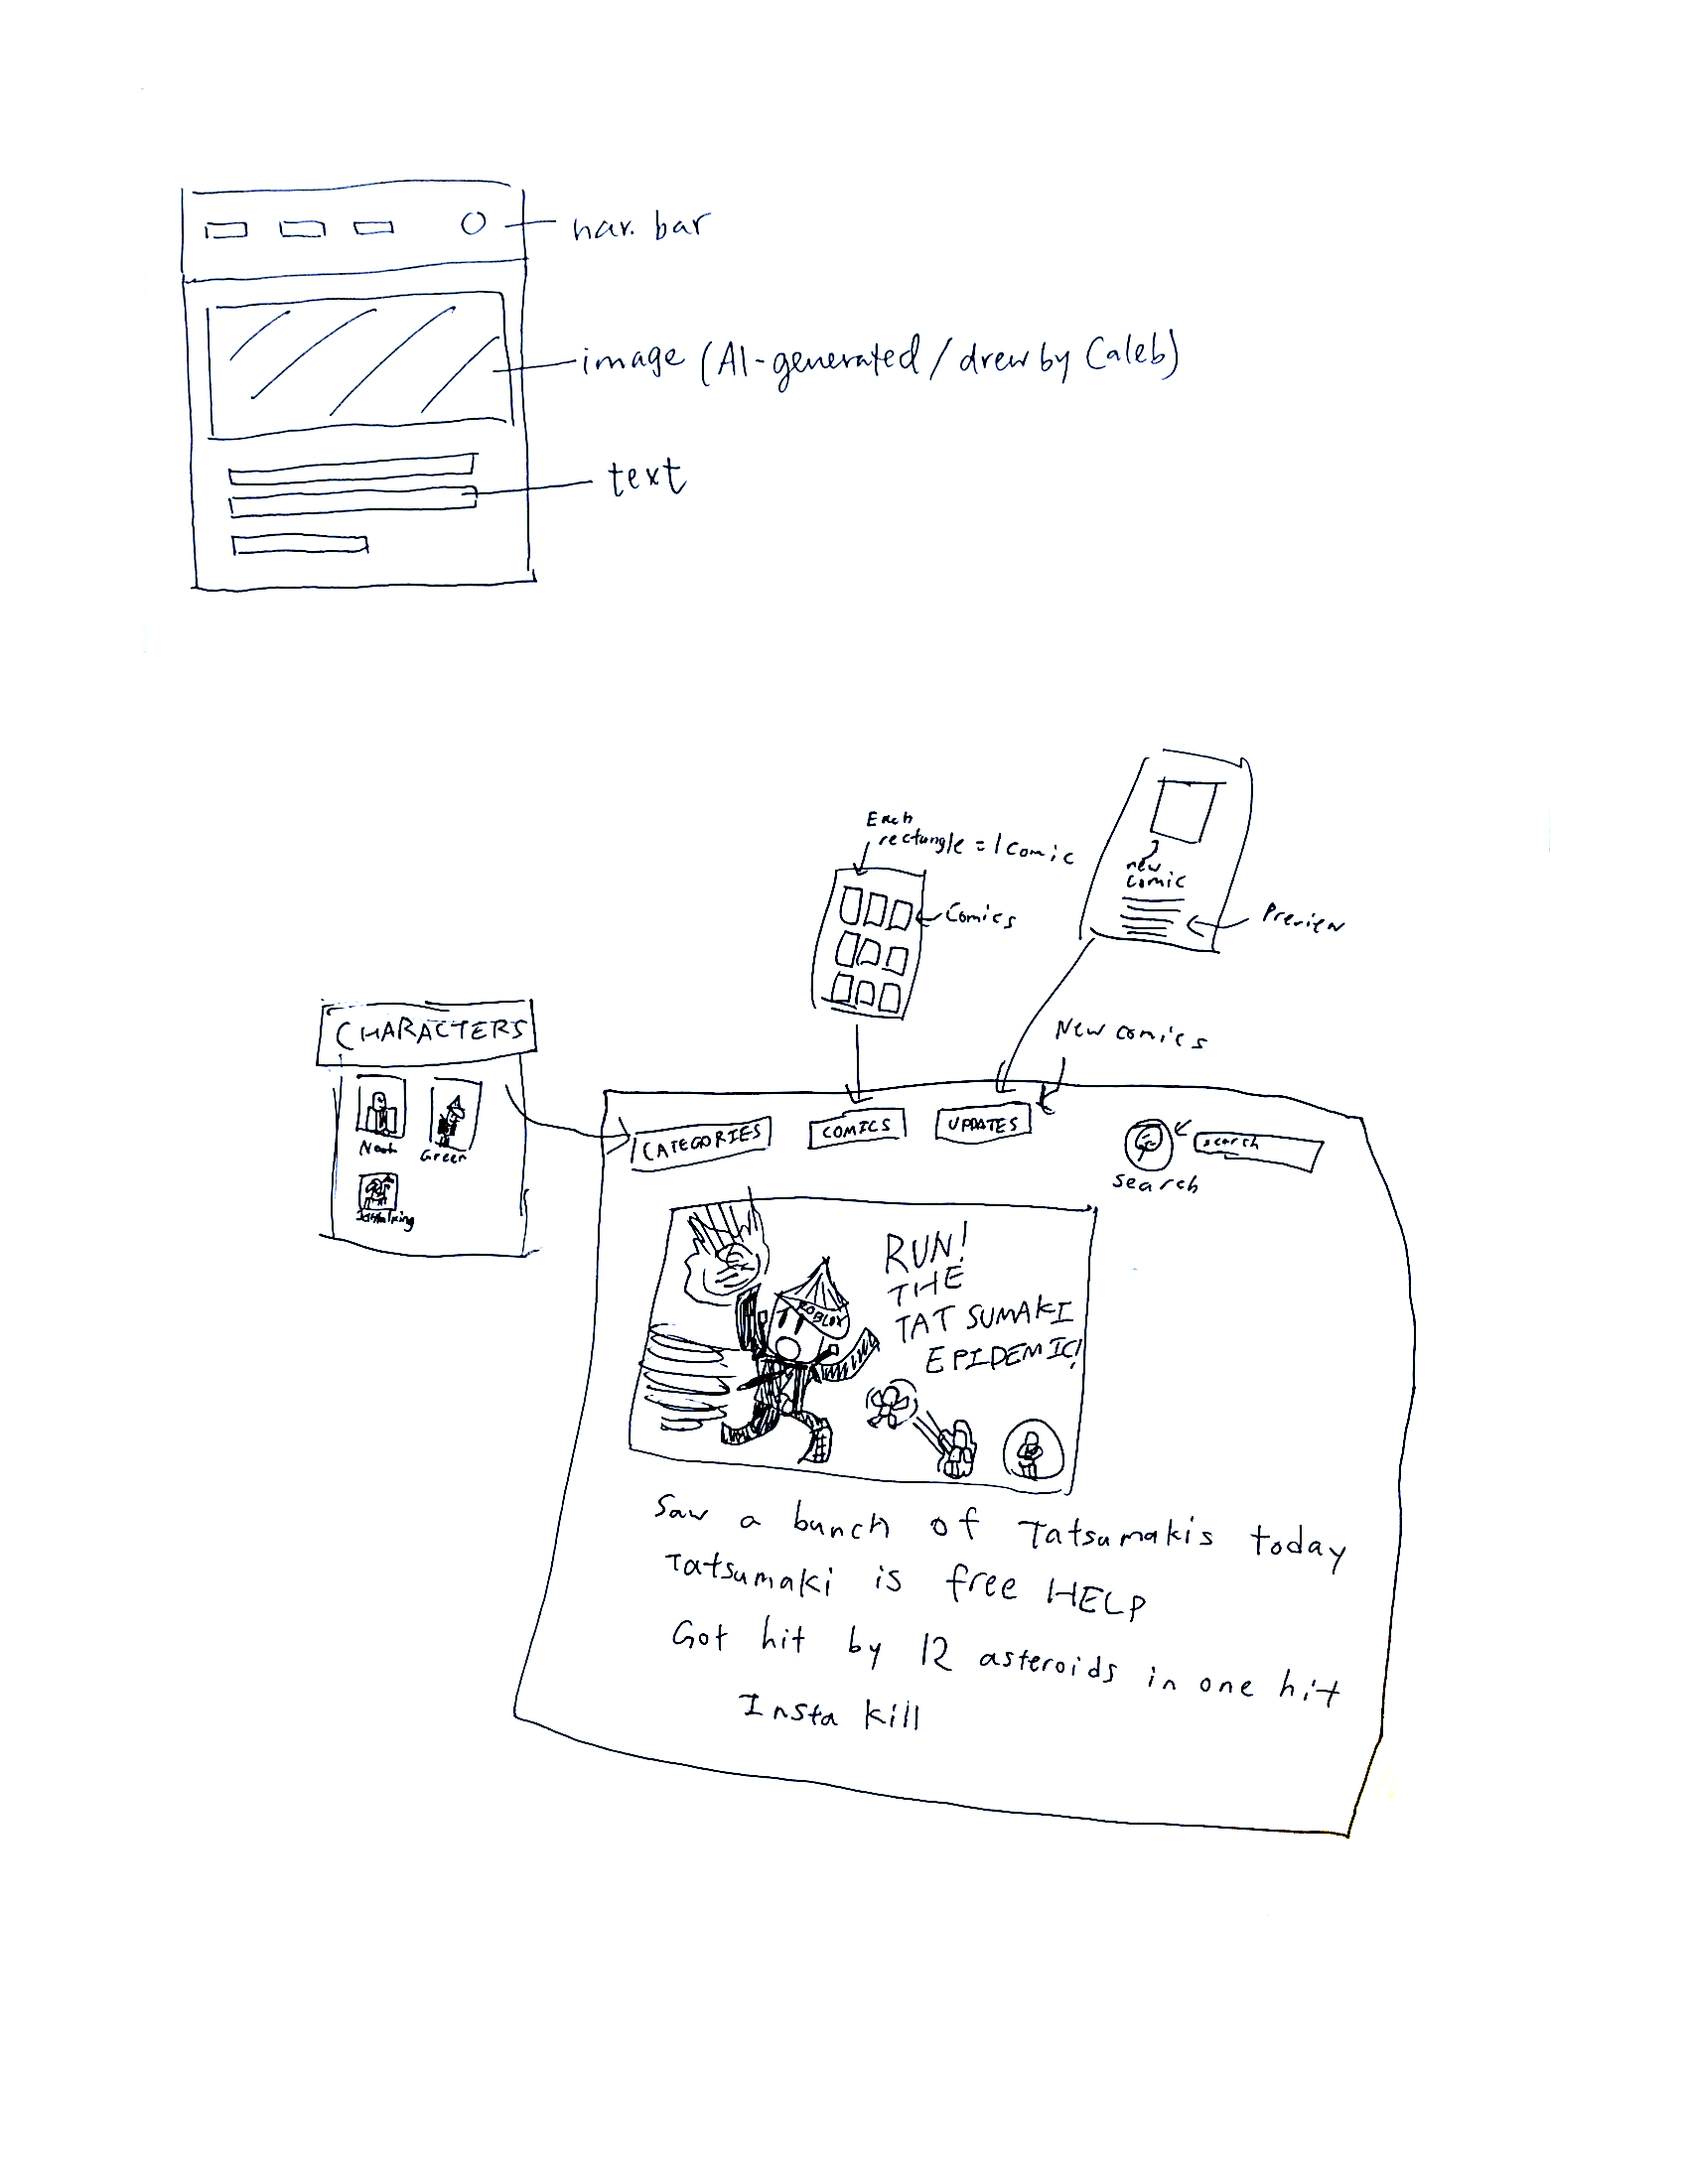 nav. bar
image (AI-generated / drew by Caleb)
text
Each
rectangle = 1 comic
Comics
new
comic
Preview
New comics
CHARACTERS
Noob
Green
CATEGORIES
COMICS
UPDATES
search
search
ROBLOX
RUN!
THE
TATSUMAKI
EPIDEMIC!
Saw a bunch of Tatsumakis today
Tatsumaki is free HELP
Got hit by 12 asteroids in one hit
Insta kill